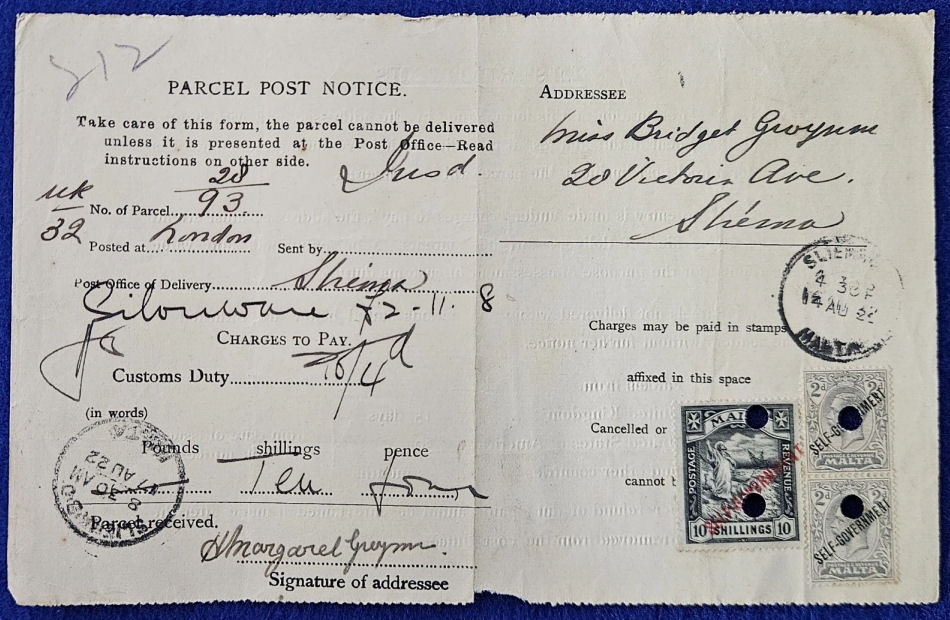 212
PARCEL POST NOTICE.
Take care of this form, the parcel cannot be delivered
unless it is presented at the Post Office—Read
instructions on other side.
Insd.
UK
32
28
No. of Parcel 93
Posted at London Sent by
Post Office of Delivery Sliema
£2-11-8
CHARGES TO PAY.
Customs Duty 10/4d
(in words)
Pounds shillings pence
Ten four
Parcel received.
Margaret Gwynn.
Signature of addressee
30 AM
AU 22
ADDRESSEE
Miss Bridget Gwynn
20 Victoria Ave.
Sliema
SLIEMA
4 30 P
AU 22
MALTA
Charges may be paid in stamps
affixed in this space
Cancelled or
cannot b
MAL
POSTAGE
REVENUE
SELF-GOVERNMENT
10 SHILLINGS 10
2d 2d
SELF-GOVERNMENT
MALTA
2d 2d
SELF-GOVERNMENT
POSTAGE & REVENUE
MALTA